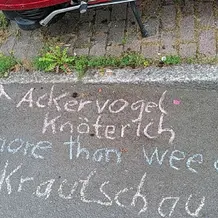 Ackervogel-
Knöterich
more than wee
Krautschau